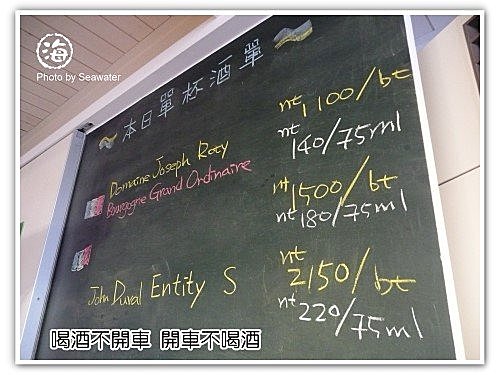 海
Photo by Seawater
本日單杯酒單
nt 1100/bt
Domaine Joseph Roty
nt 140/75ml
Bourgogne Grand Ordinaire
nt 1500/bt
nt 180/75ml
John Duval Entity S
nt 2150/bt
nt 220/75ml
喝酒不開車 開車不喝酒